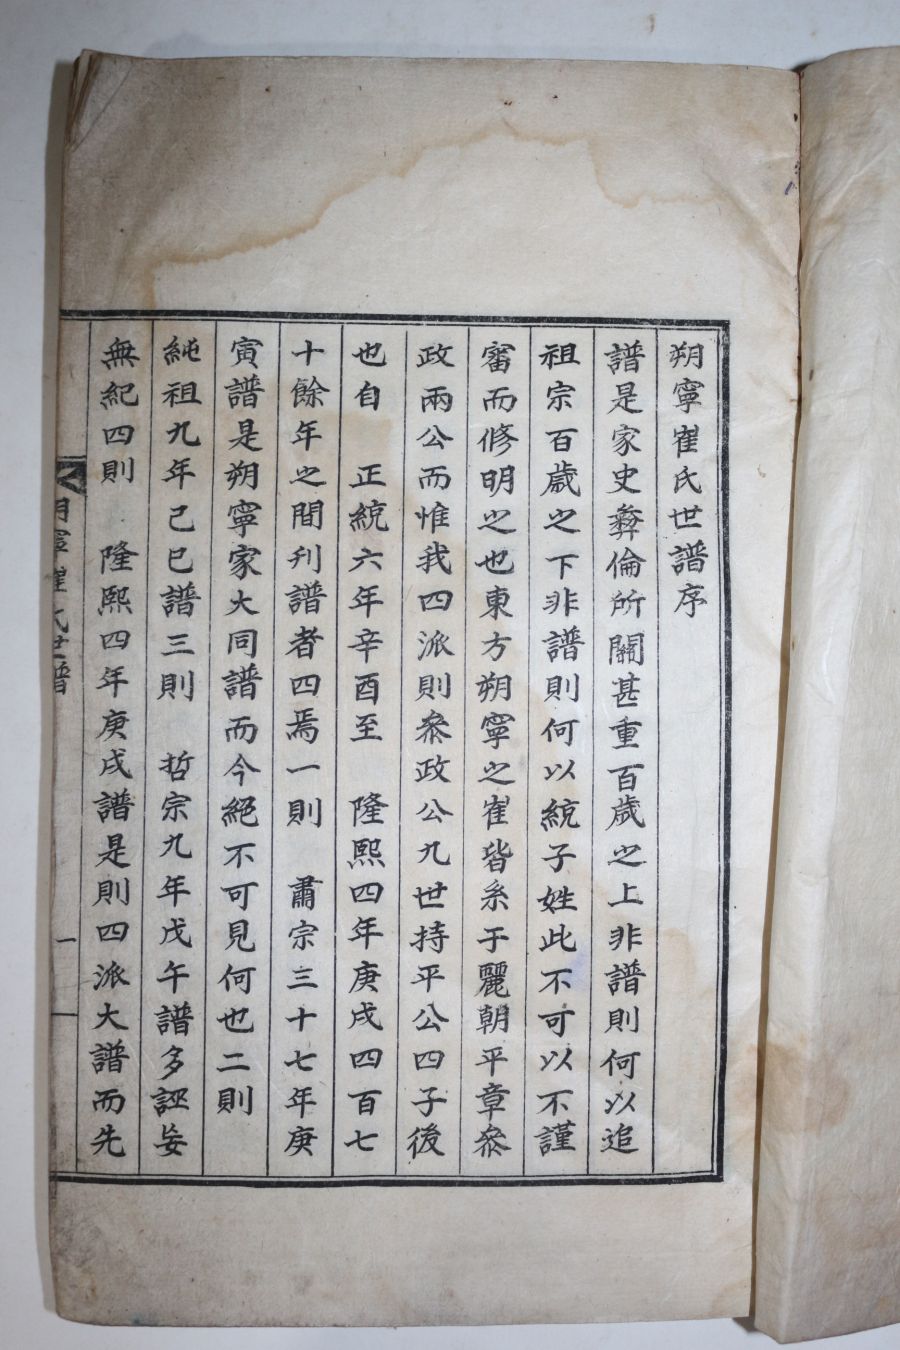 朔寧崔氏世譜序
譜是家史彛倫所關甚重百歲之上非譜則何以追
祖宗百歲之下非譜則何以統子姓此不可以不謹
審而修明之也東方朔寧之崔皆系于麗朝平章叅
政兩公而惟我四派則叅政公九世持平公四子後
也自　正統六年辛酉至　隆熙四年庚戌四百七
十餘年之間刊譜者四焉一則　肅宗三十七年庚
寅譜是朔寧家大同譜而今絕不可見何也二則
純祖九年己巳譜三則　哲宗九年戊午譜多誣妄
無紀四則　隆熙四年庚戌譜是則四派大譜而先
朔寧崔氏世譜
一